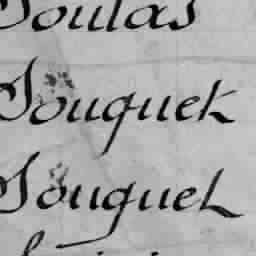 Soulas
Souquet
Souquet